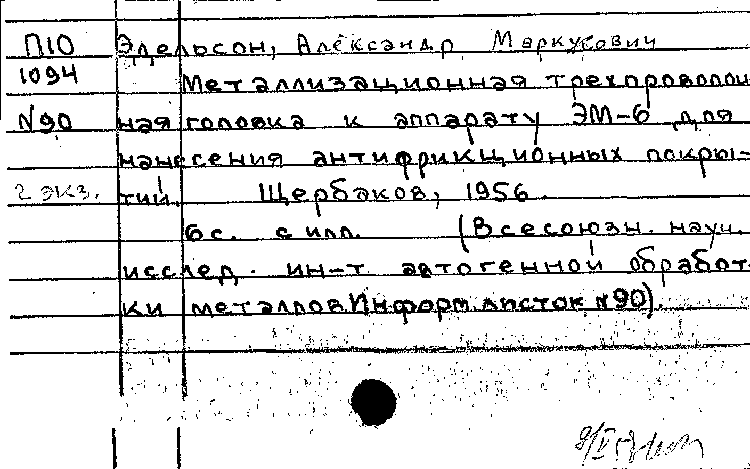 П10 Эдельсон, Александр Маркусович
1094 Металлизационная трехпроволоч
N90 ная головка к аппарату ЭМ-6 для
нанесения антифрикционных покры-
2 экз. тий. Щербаков, 1956.
6 с. с илл. (Всесоюзн. науч.
исслед. ин-т автогенной обработ-
ки металлов. Информ. листок N90).